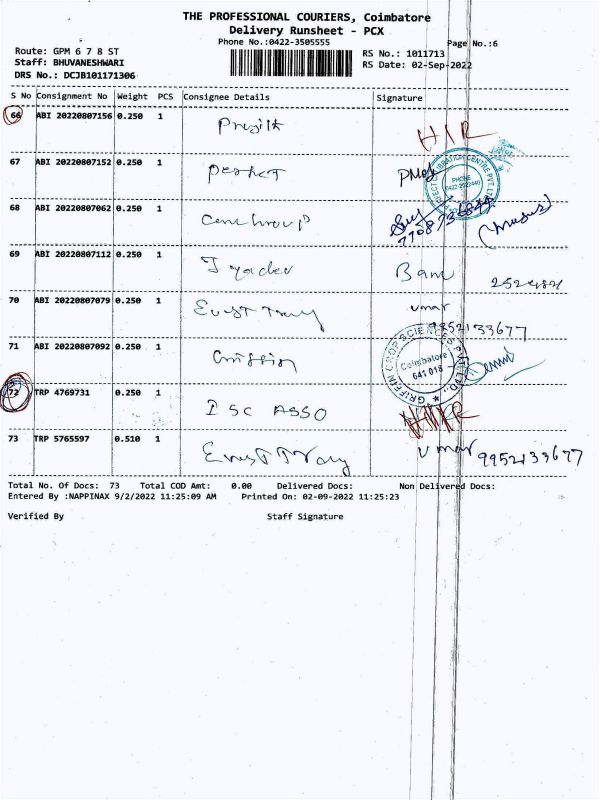 THE PROFESSIONAL COURIERS, Coimbatore
Delivery Runsheet - PCX
Phone No.:0422-3505555
Page No.:6
Route: GPM 6 7 8 ST
RS No.: 1011713
Staff: BHUVANESHWARI
RS Date: 02-Sep-2022
DRS No.: DCJB101171306
S No Consignment No Weight PCS Consignee Details Signature
66 ABI 20220807156 0.250 1
HIR
67 ABI 20220807152 0.250 1 perfect
CALIBRATION CENTRE PVT. LTD.
PHONE
68 ABI 20220807062 0.250 1
69 ABI 20220807112 0.250 1 J yadev Bam 252484
70 ABI 20220807079 0.250 1 umar
9952133677
71 ABI 20220807092 0.250 1
GRIFFIN CROP SCIENCES PVT. LTD.
Coimbatore
641 018
72 TRP 4769731 0.250 1 ISC ASSO
73 TRP 5765597 0.510 1 umar 9952133677
Total No. Of Docs: 73 Total COD Amt: 0.00 Delivered Docs: Non Delivered Docs:
Entered By :NAPPINAX 9/2/2022 11:25:09 AM Printed On: 02-09-2022 11:25:23
Verified By Staff Signature